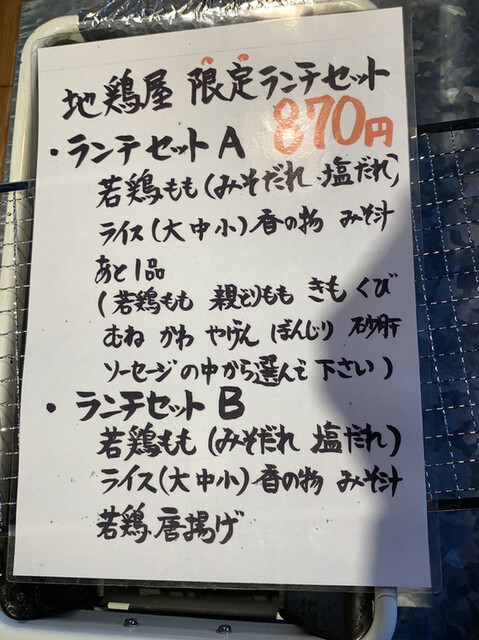 地鶏屋 限定ランチセット
870円
・ランチセットA
若鶏もも(みそだれ 塩だれ)
ライス(大中小)香の物 みそ汁
あと1品
(若鶏もも 親どりもも きも くび
むね かわ やげん ぼんじり 砂肝
ソーセージの中から選んで下さい)
・ランチセットB
若鶏もも(みそだれ 塩だれ)
ライス(大中小)香の物 みそ汁
若鶏唐揚げ